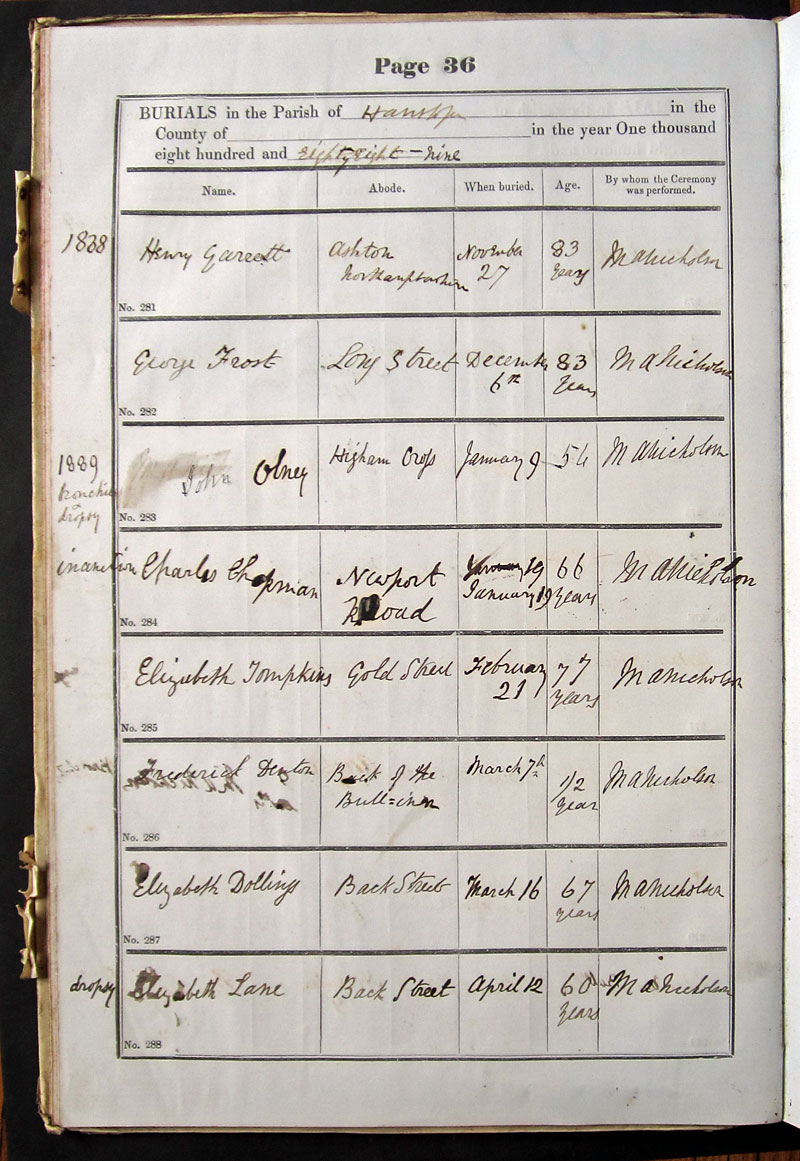 Page 36
BURIALS in the Parish of Hanslope in the
County of in the year One thousand
eight hundred and Eighty eight - nine
Name. Abode. When buried. Age. By whom the Ceremony
was performed.
1888 Henry Garrett Ashton November 83 M A Nicholson
Northamptonshire 27 years
No. 281
George Frost Long Street December 83 M A Nicholson
6th years
No. 282
1889 John Olney Higham Cross January 9 54 M A Nicholson
dropsy
No. 283
inanition Charles Chapman Newport January 19 66 M A Nicholson
Road January 19 years
No. 284
Elizabeth Tompkins Gold Street February 77 M A Nicholson
21 years
No. 285
Frederick Denton Back of the March 7th 1/2 M A Nicholson
Bull=inn year
No. 286
Elizabeth Dollings Back Street March 16 67 M A Nicholson
years
No. 287
dropsy Elizabeth Lane Back Street April 12 60 M A Nicholson
years
No. 288